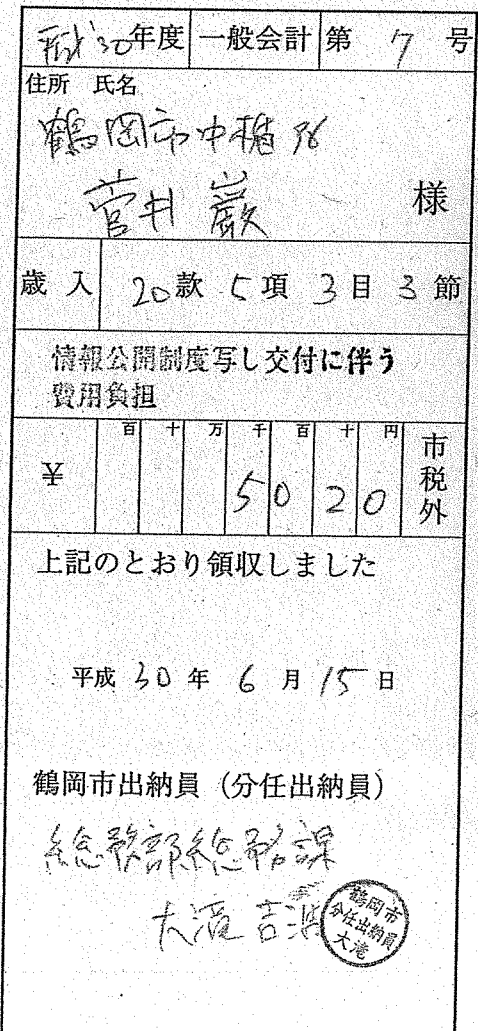 平成30年度 一般会計 第 7 号
住所 氏名
鶴岡市中楯96
菅井 巌 様
歳入 20款 5項 3目 3節
情報公開制度写し交付に伴う
費用負担
百 十 万 千 百 十 円
¥ 5 0 2 0 市税外
上記のとおり領収しました
平成 30 年 6 月 15 日
鶴岡市出納員(分任出納員)
総務部総務課
大滝 吉
鶴岡市
分任出納員
大滝